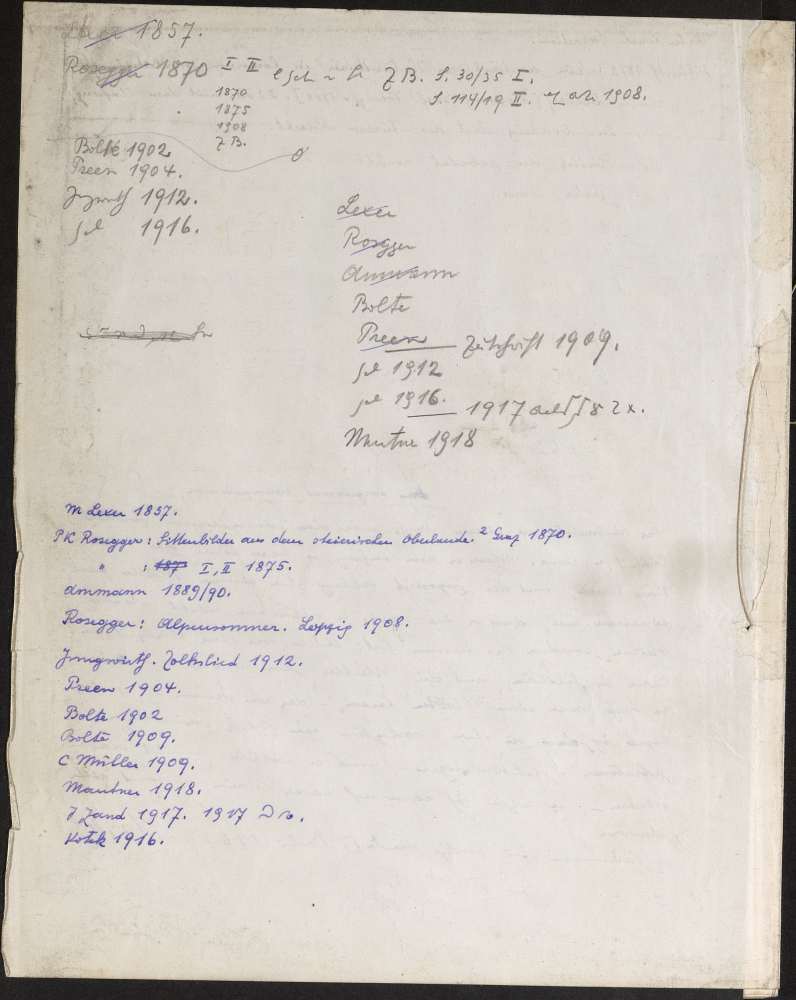 Lexer 1857.
Rosegger 1870 I II Z B. S. 30/35 I.
1870 S. 114/19 II. 1908.
1875
1908
Z B.
Bolte 1902
Preen 1904.
Jungwirth 1912.
1916.
Lexer
Rosegger
Ammann
Bolte
Preen Zeitschrift 1909.
1912
1916. 1917
Mautner 1918
M Lexer 1857.
PK Rosegger: Sittenbilder aus dem steierischen Oberlande. 2 Graz 1870.
" : 187 I, II 1875.
Ammann 1889/90.
Rosegger: Alpensommer. Leipzig 1908.
Jungwirth. Volkslied 1912.
Preen 1904.
Bolte 1902
Bolte 1909.
C Müller 1909.
Mautner 1918.
J Zand 1917. 1917
Kotek 1916.